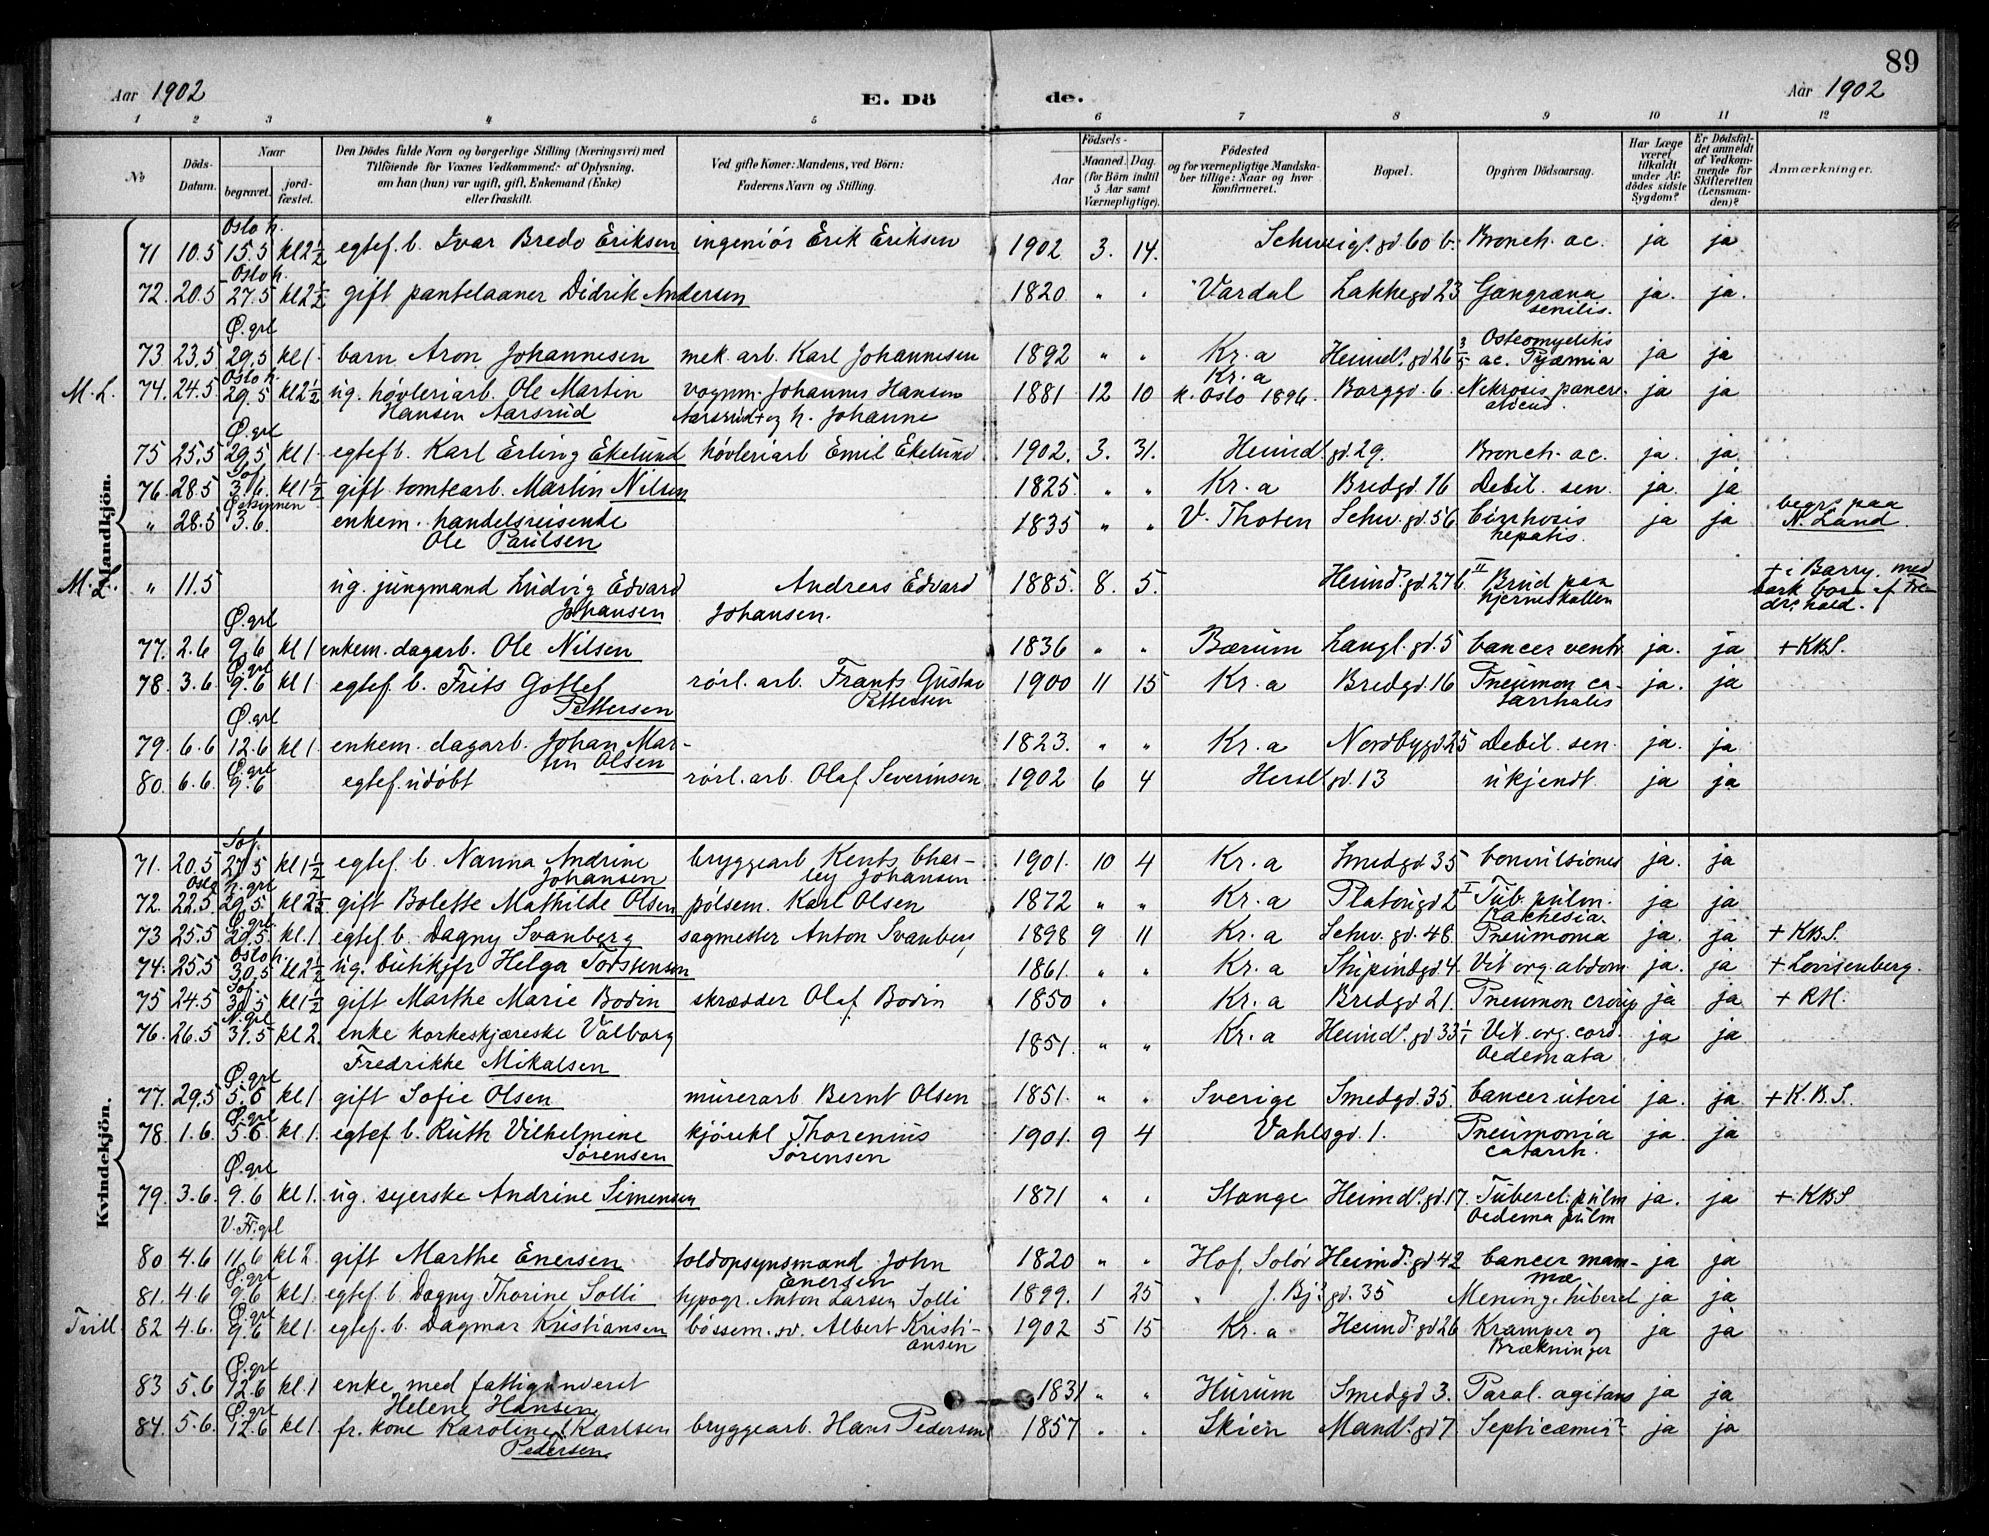 89
Aar 1902
E. Dö
de.
Aar 1902
1 2 3 4 5 6 7 8 9 10 11 12
No
Döds-Datum.
Naar
begravet.
jord-fæstet.
Den Dödes fulde Navn og borgerlige Stilling (Næringsvei) med
Tilföiende for Voxnes Vedkommende af Oplysning,
om han (hun) var ugift, gift, Enkemand (Enke)
eller fraskilt.
Ved gifte Koner: Mandens, ved Börn:
Faderens Navn og Stilling.
Födsels-
Aar
Maaned. Dag.
(for Börn indtil
5 Aar samt
Værnepligtige).
Födested
og for værnepligtige Mandska-
ber tillige: Naar og hvor
konfirmeret.
Bopæl.
Opgiven Dödsaarsag.
Har Læge
været
tilkaldt
under Af-
dödes sidste
Sygdom?
Er Dödsfal-
det anmeldt
af Vedkom-
mende for
Skifteretten
(Lensman-
den)?
Anmærkninger.
Mandkjön.
Oslo k.
71 10.5 15.5 kl 2½ egtef. b. Ivar Bredo Eriksen ingeniör Erik Eriksen 1902 3. 14. Schweigs. gd 60 b. Bronch. ac. ja ja
Oslo k.
72. 20.5 27.5 kl 2½ gift pantelaaner Didrik Andersen 1820 " " Vardal Lakkegd 23 Gangræna ja. ja.
senilis.
Ø. grl
73 23.5 29.5 kl 1 barn Aron Johannesen mek. arb. Karl Johannesen 1892 " " Kr.a Heimds. gd 26 3/5 Osteomyelitis ac. Pyæmia ja ja
Oslo k. Kr.a
M.L. 74. 24.5 29.5 kl 2½ ug. høvleriarb. Ole Martin vognm. Johannes Hansen 1881 12 10 k. Oslo 1896. Borggd. 6. Nekrosis pancre- ja ja
Hansen Aarsrud Aarsrud + og h. Johanne aticus.
Ø. grl
75 25.5 29.5 kl 1 egtef b. Karl Erling Ekelund høvleriarb Emil Ekelund 1902. 3. 31. Heimd gd. 29. Bronch. ac. ja. ja
Sof.
76. 28.5 3.6. kl 1½ gift tomtearb. Martin Nilsen 1825. " " Kr.a Bredgd. 16 Debil. sen. ja. ja
" 28.5 3.6. enkem. handelsreisende 1835 " " V. Thoten Schw. gd. 56 Cirrhosis ja ja begr. paa
Ole Paulsen hepatis. N. Land.
M.L. " 11.5 ug. jungmand Ludvig Edvard Andreas Edvard 1885. 8. 5. Heimds. gd. 27 b. II Brud paa + i Barry, med
Johansen Johansen. hjerneskallen bark born af Fre-
drs. hald.
Ø. grl
77. 2.6 9.6 kl 1 enkem. dagarb. Ole Nilsen 1836 " " Bærum Langl. gd. 5 Cancer ventr. ja. ja + KBS.
Ø. grl
78. 3.6. 9.6 kl 1 egtef. b. Frits Gotlef rørl. arb. Frants Gustav 1900 11 15 Kr.a Bredgd. 16 Pneumon ca- ja. ja
Pettersen Pettersen tarrhalis
Ø. grl
79. 6.6 12.6 kl 1. enkem. dagarb. Johan Mar- 1823. " " Kr.a Nordbygd 25 Debil. sen. ja. ja
tin Olsen
Ø. grl
80. 6.6. 9.6 egtef. udøbt rørl. arb. Olaf Severinsen 1902 6 4 Hersl gd. 13 ukjendt ja ja
Kvindekjön.
Sof.
71. 20.5 27.5 kl 1½ egtef. b. Nanna Andrine bryggearb. Kents Char- 1901. 10 4 Kr.a Smedgd. 35 Convulsiones ja. ja
Johansen ley Johansen
Oslo k. grl
72. 22.5 29.5 kl 2½ gift Bolette Mathilde Olsen pølsem. Karl Olsen 1872 " " Kr.a Platougd 2 I Tub. pulm. ja ja
Kakhesia.
Ø. grl
73 25.5 29.5. kl. 1 egtef. b. Dagny Svanberg sagmester Anton Svanberg 1898 9 11 Kr.a Schw. gd. 48. Pneumonia ja. ja + KBS.
Oslo k.
74. 25.5 30.5 kl 2½ ug. butikjfr Helga Torstensen 1861. " " Kr.a Stupindgd 4. Vit. org. abdom ja. ja + Lovisenberg.
Sof.
75 24.5 30.5 kl 1½ gift Marthe Marie Bodin skrædder Olaf Bodin 1850 " Kr.a Bredgd 21. Pneumon croup ja ja + RH.
N. grl
76. 26.5 31.5 kl 2. enke korkeskjæreske Valborg 1851. " " Kr.a Heimds. gd 33 1/1 Vit. org. cord. ja ja
Fredrikke Mikalsen Oedemata
Ø. grl
77. 29.5 5.6 kl 1. gift Sofie Olsen murerarb Bernt Olsen 1851. " " Sverige Smedgd. 35. Cancer uteri ja. ja + K.B.S.
Ø. grl
78. 1.6. 5.6 kl 1. egtef b. Ruth Vilhelmine kjørekl Thorenius 1901. 9 4 Vahlsgd. 1. Pneumonia ja. ja
Sørensen Sørensen catarrh.
Ø. grl
79. 3.6. 9.6 kl 1. ug. syerske Andrine Simensen 1871 " " Stange Heimds. gd. 17. Tubercl. pulm ja. ja + KBS
Oedema pulm
V. Fr. grl
80 4.6 11.6 kl 2. gift Marthe Enersen toldopsynsmand John 1820 " " Hof, Solør Heimds. gd 42 Cancer mam- ja ja
Enersen mæ
Ø. grl
81. 4.6 9.6 kl 1. egtef. b. Dagny Thorine Solli typogr. Anton Larsen Solli 1899. 1 25 " J. Bj. gd. 35 Mening. tubercl ja ja
Ø. grl
Tvill. 82 4.6. 9.6 kl 1. egtef. b. Dagmar Kristiansen bøssem. sv. Albert Kristi- 1902 5 15 Kr.a Heimds. gd 26 Kramper og ja ja
ansen Brækninger
Ø. grl
83 5.6 12.6 kl. 1 enke med fattigunderst 1831 " " Hurum Smedgd 3. Paral. agitans ja ja
Helene Hansen
Ø. grl
84. 5.6. 12.6 kl 1. fr. kone Karoline Karlsen bryggearb. Hans Pedersen 1857 " " Skien Mands. gd 7 Septicæmi ja ja
Pedersen